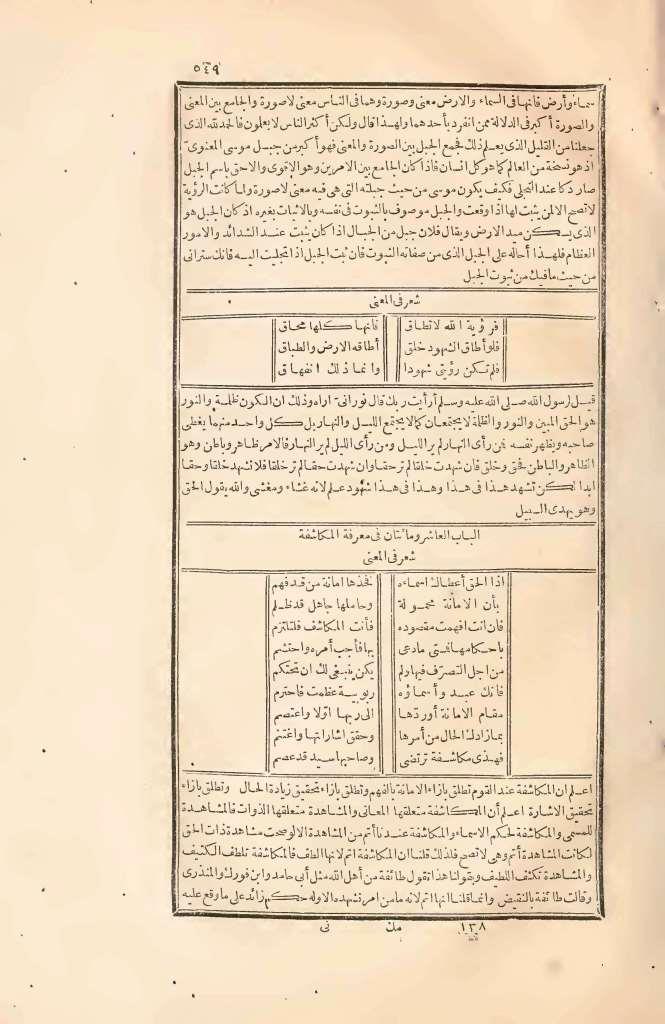 ٥٤٩
سماء وأرض فانها فى السماء والارض معنى وصورة وهما فى الناس معنى لا صورة والجامع بين المعنى
والصورة أكبر فى الدلالة ممن انفرد بأحدهما ولهذا قال ولكن أكثر الناس لا يعلمون فالحمد لله الذى
جعلنا من القليل الذى يعلم ذلك فجمع الجبل بين الصورة والمعنى فهو أكبر من جبل موسى المعنوى
اذ هو نسخة من العالم كما هو كل انسان فاذا كان الجامع بين الامرين وهو الاقوى والاحق باسم الجبل
صار دكا عند التجلى فكيف يكون موسى من حيث جبليته التى هى فيه معنى لا صورة ولما كانت الرؤية
لا تصح الا لمن يثبت لها اذا وقعت والجبل موصوف بالثبوت فى نفسه وبالاثبات بغيره اذ كان الجبل هو
الذى يسكن ميد الارض ويقال فلان جبل من الجبال اذا كان يثبت عند الشدائد والامور
العظام فلهذا أحاله على الجبل الذى من صفاته الثبوت فان ثبت الجبل اذا تجليت اليه فانك سترانى
من حيث ما فيك من ثبوت الجبل
شعر فى المعنى
فرؤية الله لا تطاق فانها كلها محاق
فلو أطاق الشهود خلق أطاقه الارض والطباق
فلم تكن رؤيتى شهودا وانما ذلك انفهاق
قيل لرسول الله صلى الله عليه وسلم أرأيت ربك قال نورانى أراه وذلك ان الكون ظلمة والنور
هو الحق المبين والنور والظلمة لا يجتمعان كما لا يجتمع الليل والنهار بل كل واحد منهما يغطى
صاحبه ويظهر نفسه فمن رأى النهار لم ير الليل ومن رأى الليل لم ير النهار فالامر ظاهر وباطن وهو
الظاهر والباطن فحق وخلق فان شهدت خلقا لم تر حقا وان شهدت حقا لم تر خلقا فلا تشهد خلقا وحقا
ابدا لكن تشهد هذا فى هذا وهذا فى هذا شهود علم لانه غشاء ومغشى والله يقول الحق
وهو يهدى السبيل
الباب العاشر ومائتان فى معرفة المكاشفة
شعر فى المعنى
اذا الحق أعطاك اسماءه فخذها امانة من قد فهم
بأن الامانة محمولة وحاملها جاهل قد ظلم
فان انت افهمت مقصوده فأنت المكاشف فلتلتزم
باحكامها فمتى ما دعى بها فأجب أمره واحتشم
من اجل التصرف فيها ولم يكن ينبغى لك ان تحتكم
فانك عبد وأسماؤه ربوبية عظمت فاحترم
مقام الامانة أوردها الى ربها اوّلا واعتصم
بما زادك الحال من أمرها وحقق اشاراتها واغتنم
فهذى مكاشفة ترتضى وصاحبها سيد قد عصم
اعلم ان المكاشفة عند القوم تطلق بازاء الامانة بالفهم وتطلق بازاء تحقيق زيادة الحال وتطلق بازاء
تحقيق الاشارة اعلم أن المكاشفة متعلقها المعانى والمشاهدة متعلقها الذوات فالمشاهدة
للمسمى والمكاشفة لحكم الاسماء والمكاشفة عندنا أتم من المشاهدة الا لو صحت مشاهدة ذات الحق
لكانت المشاهدة أتم وهى لا تصح فلذلك قلنا ان المكاشفة اتم لانها الطف فالمكاشفة تلطف الكثيف
والمشاهدة تكثف اللطيف وبقولنا هذا تقول طائفة من أهل الله مثل أبى حامد وابن فورك والمنذرى
وقالت طائفة بالنقيض وانما قلنا انها اتم لانه ما من امر تشهده الا وله حكم زائد على ما وقع عليه
١٣٨ مك نى